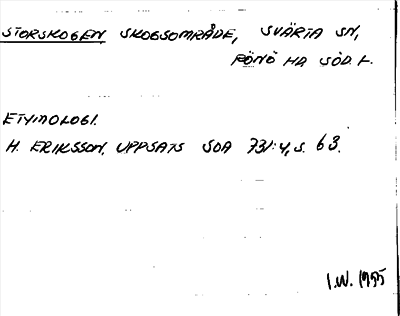 STORSKOGEN SKOGSOMRÅDE, SVÄRTA SN,
RÖNÖ HA SÖD. L.
ETYMOLOGI.
H. ERIKSSON, UPPSATS SOA 731:4, S. 63.
I.W. 1955